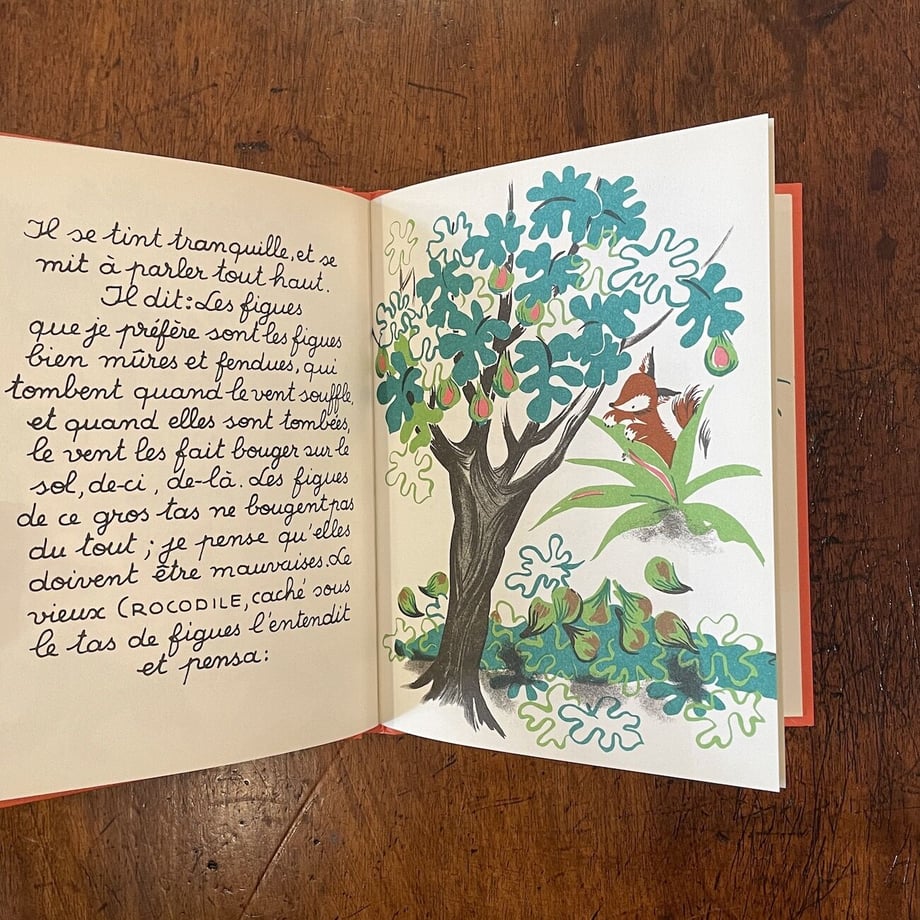 Il se tint tranquille, et se
mit à parler tout haut.
Il dit : Les figues
que je préfère sont les figues
bien mûres et fendues, qui
tombent quand le vent souffle,
et quand elles sont tombées,
le vent les fait bouger sur le
sol, de-ci, de-là. Les figues
de ce gros tas ne bougent pas
du tout ; je pense qu'elles
doivent être mauvaises. Le
vieux CROCODILE, caché sous
le tas de figues l'entendit
et pensa :